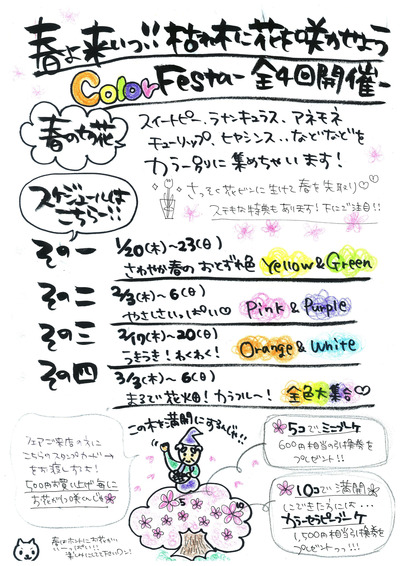 春よ来いっ!! 枯れ木に花を咲かせよう
Color Festa - 全4回開催 -
春のお花
スイートピー、ラナンキュラス、アネモネ
チューリップ、ヒヤシンス...などなどを
カラー別に集めちゃいます!
さっそく花ビンに生けて春を先取り♡♡
ステキな特典もあります! 下にご注目!!
スケジュールは
こちらー!!
その一
1/20(木)〜23(日)
さわやか春のおとずれ色 Yellow & Green
その二
2/3(木)〜6(日)
やさしさいっぱい♡ Pink & Purple
その三
2/17(木)〜20(日)
うきうき!わくわく! Orange & White
その四
3/3(木)〜6(日)
まるで花畑!カラフルー! 全色大集合♡
この木を満開にするんじゃ!!
フェアご来店の方に
こちらのスタンプカードを
お渡しするぞ!
500円お買い上げ毎に
お花が1つ咲くんじゃ
5コでミニブーケ
600円相当の引換券を
プレゼント!!
10コで満開
にできた方には...
カラーセラピーブーケ
1,500円相当引換券を
プレゼントっっ!!!
5
10